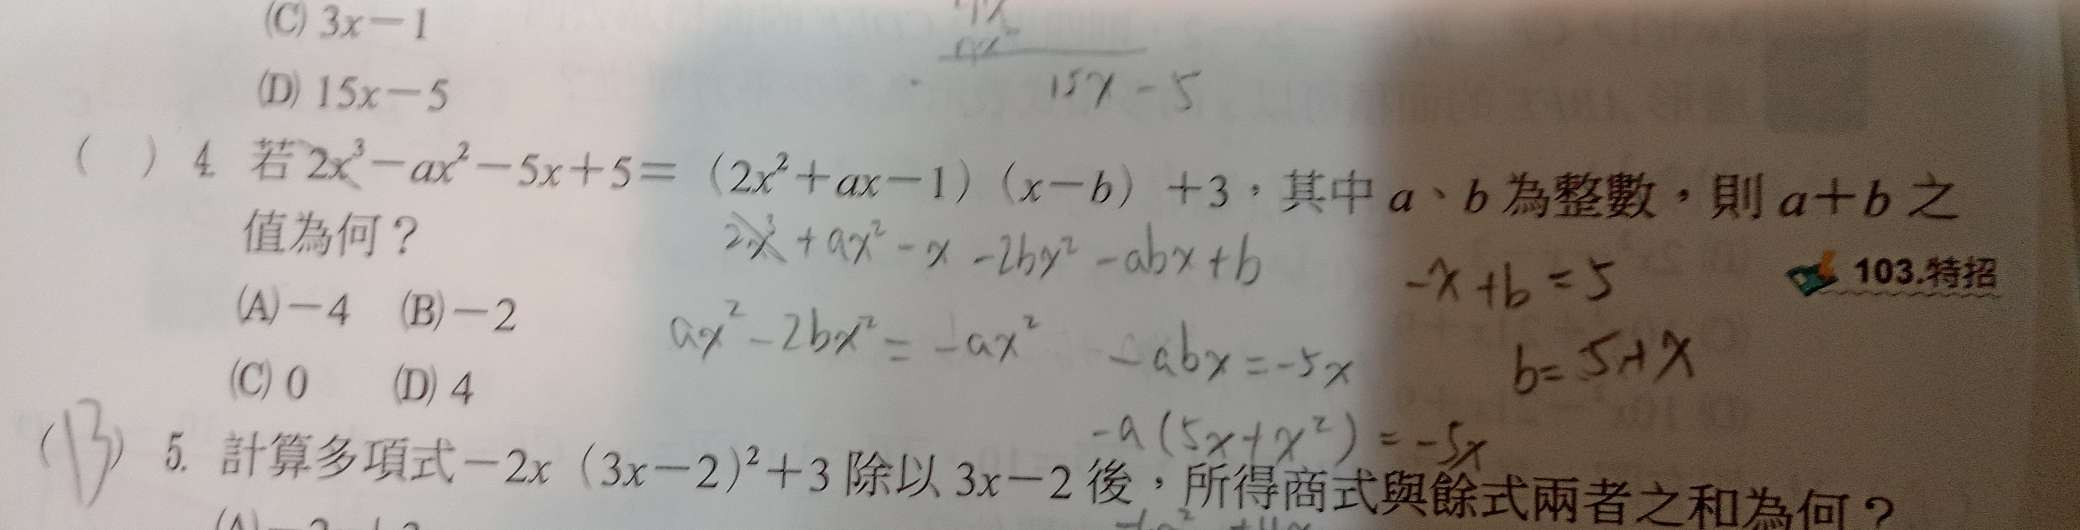 (C) 3x－1
(D) 15x－5
15x - 5
(　) 4. 若 2x³－ax²－5x＋5＝（2x²＋ax－1）（x－b）＋3，其中 a、b 為整數，則 a＋b 之
值為何？
2x³ + ax² - x - 2bx² - abx + b
103.特招
-x + b = 5
(A)－4 (B)－2
ax² - 2bx² = -ax²
-abx = -5x
b = 5 + x
(C) 0 (D) 4
-a (5x + x²) = -5x
(B) 5. 計算多項式－2x（3x－2）²＋3 除以 3x－2 後，所得商式與餘式兩者之和為何？